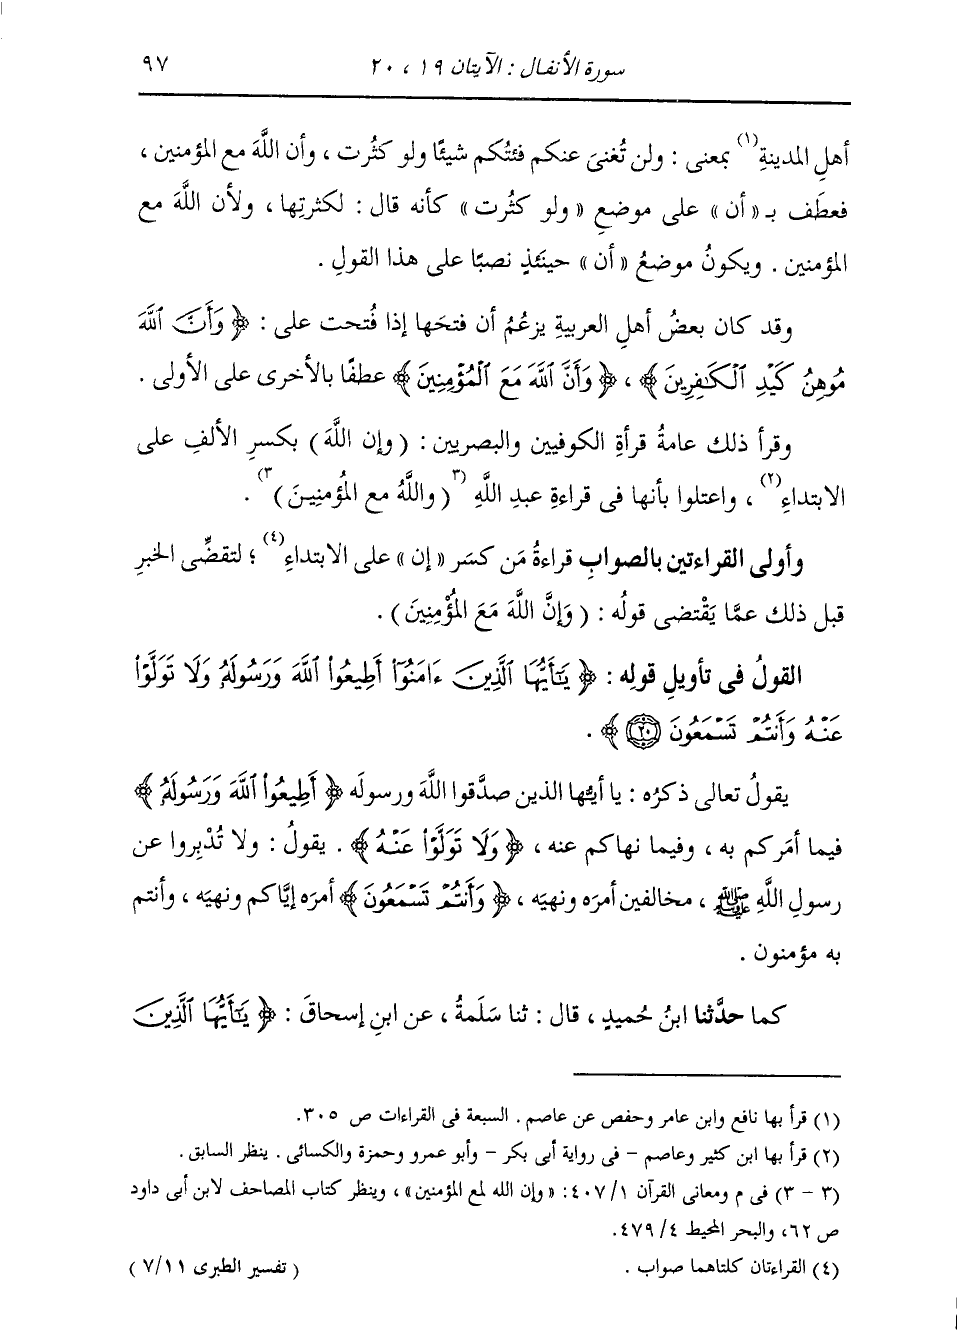 سورة الأنفال : الآيتان ١٩ ، ٢٠
٩٧
أهلِ المدينةِ(١) بمعنى : ولن تُغنىَ عنكم فئتُكم شيئًا ولو كثُرت ، وأن اللَّهَ مع المؤمنين ،
فعطَف بـ «أن» على موضعِ «ولو كثُرت» كأنه قال : لكثرتِها ، ولأن اللَّهَ مع
المؤمنين . ويكونُ موضعُ «أن» حينَئذٍ نصبًا على هذا القولِ .
وقد كان بعضُ أهلِ العربيةِ يزعُمُ أن فتحَها إذا فُتحت على : ﴿ وَأَنَّ ٱللَّهَ
مُوهِنُ كَيْدِ ٱلْكَٰفِرِينَ ﴾ ، ﴿ وَأَنَّ ٱللَّهَ مَعَ ٱلْمُؤْمِنِينَ ﴾ عطفًا بالأخرى على الأولى .
وقرأ ذلك عامةُ قرأةِ الكوفيين والبصريين : ( وإن اللَّهَ ) بكسرِ الألفِ على
الابتداءِ(٢) ، واعتلوا بأنها فى قراءةِ عبدِ اللَّهِ (٣( واللَّهُ مع المُؤمنِينَ )٣) .
وأولى القراءتين بالصوابِ قراءةُ مَن كسَر «إن» على الابتداءِ(٤) ؛ لتقضِّى الخبرِ
قبل ذلك عمَّا يَقْتضى قولُه : ( وَإِنَّ اللَّهَ مَعَ المُؤْمِنِينَ ) .
القولُ فى تأويلِ قولِه : ﴿ يَٰٓأَيُّهَا ٱلَّذِينَ ءَامَنُوٓا۟ أَطِيعُوا۟ ٱللَّهَ وَرَسُولَهُۥ وَلَا تَوَلَّوْا۟
عَنْهُ وَأَنتُمْ تَسْمَعُونَ ۝٢٠ ﴾ .
يقولُ تعالى ذكرُه : يا أيُّها الذين صدَّقوا اللَّهَ ورسولَه ﴿ أَطِيعُوا۟ ٱللَّهَ وَرَسُولَهُۥ ﴾
فيما أمَركم به ، وفيما نهاكم عنه ، ﴿ وَلَا تَوَلَّوْا۟ عَنْهُ ﴾ . يقولُ : ولا تُدْبِروا عن
رسولِ اللَّهِ ﷺ ، مخالفين أمرَه ونهيَه ، ﴿ وَأَنتُمْ تَسْمَعُونَ ﴾ أمرَه إيَّاكم ونهيَه ، وأنتم
به مؤمنون .
كما حدَّثنا ابنُ حُميدٍ ، قال : ثنا سَلَمةُ ، عن ابنِ إسحاقَ : ﴿ يَٰٓأَيُّهَا ٱلَّذِينَ
(١) قرأ بها نافع وابن عامر وحفص عن عاصم . السبعة فى القراءات ص ٣٠٥.
(٢) قرأ بها ابن كثير وعاصم – فى رواية أبى بكر – وأبو عمرو وحمزة والكسائى . ينظر السابق .
(٣ – ٣) فى م ومعانى القرآن ٤٠٧/١: «وإن الله لمع المؤمنين» ، وينظر كتاب المصاحف لابن أبى داود
ص ٦٢، والبحر المحيط ٤/ ٤٧٩.
(٤) القراءتان كلتاهما صواب .
( تفسير الطبرى ٧/١١ )